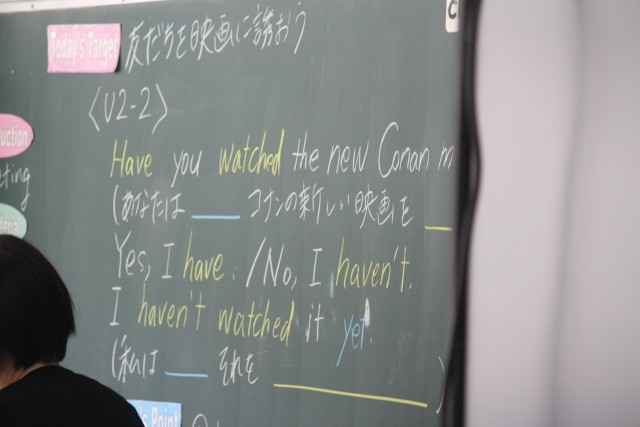 C
Today's Target 友だちを映画に誘おう
〈U2-2〉
uction
Have you watched the new Conan m
eting
(あなたは ___ コナンの新しい映画を ___
erial
Yes, I have. /No, I haven't.
I haven't watched it yet.
(私は ___ それを ___ )
's Point